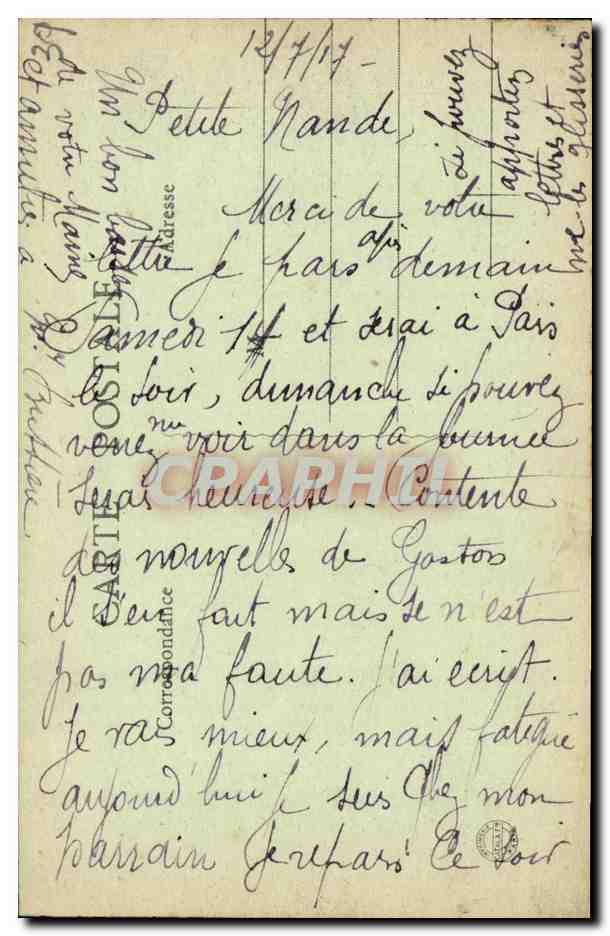 12/7/17
Petite Nande,
Merci de votre
lettre je pars après demain
Samedi 14 et serai à Paris
le soir, dimanche si pouvez
venez me voir dans la journée
serai heureuse.. Contente
des nouvelles de Gaston
il s'en fait mais se n'est
pas ma faute. J'ai ecrit.
Je vais mieux, mais fatiguée
aujourd'hui je suis Chez mon
parrain Je repars Ce soir
Si pouvez
apportez
lettres et
Un bon baiser
de votre
Et amitiés à
CARTE POSTALE
Correspondance
Adresse
CPAPHIL